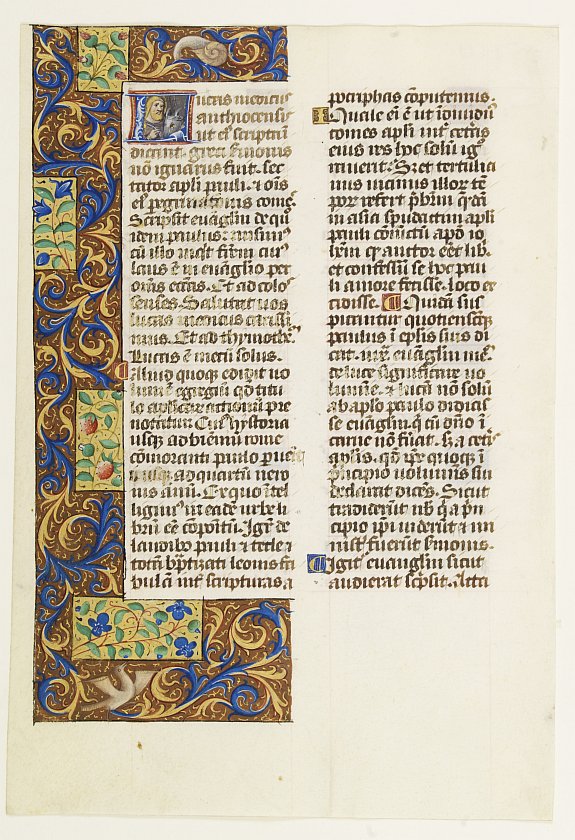 Lucas medicus
anthiocensis
ut ei scriptū
dicāt. greci sermonis
nō ignarus fuit. sec
tator apli pauli. ⁊ oīs
ei peregrinationis comes.
Scripsit euāgliū de qu
idem paulus: misim
cū illo inqt frēm cui
laus ē in euāglio per
oms eccias. Et ad colo
senses. Salutat uos
lucas medicus carissi
mus. Et ad thymothe.
Lucas ē mecū solus.
Aliud quoque edidit uo
lumē egregiū qd titu
lo aplicaꝝ actionū pre
notatur. Cuius hystoria
usque ad bienniū rome
cōmorantis paulo puenit
ad quartū nero
nis annū. Ex quo itel
ligimus in eadē urbe li
brū eē cōpositū. Igit de
laudibo pauli ⁊ tecle ⁊
totā bptizati leonis fa
bulā int scripturas a
pocriphas cōputemus.
Quale ei ē ut idiuidu
comes apli int ceteras
eius res hoc solū ig
nuerit. Sed et tertulia
nus uicinus illor tē
por refert p̄bīm qdā
in asia spudastim apli
pauli cōuictū apd io
hēm q auctor eēt lib.
et confessū se hoc pau
li amore fecisse. loco ex
cidisse. Quidā sus
picantur quotienscūq
paulus ī eplis suis di
cat. iuxͣ euāgliū meū
de luce significare uo
lumīe. ⁊ lucā nō solū
ab aplo paulo didicis
se euāgliū q cū dnō ī
carne nō fuāt. s; a ceteris
aplis. qd ipe quoque ī
pncipio uoluminis sui
declarat dicēs. Sicut
tradiderūt nob q a prin
cipio ipi uiderūt ⁊ mi
nistri fuerūt sermonis.
Igit euāgliū sicut
audierat scpsit. Acta